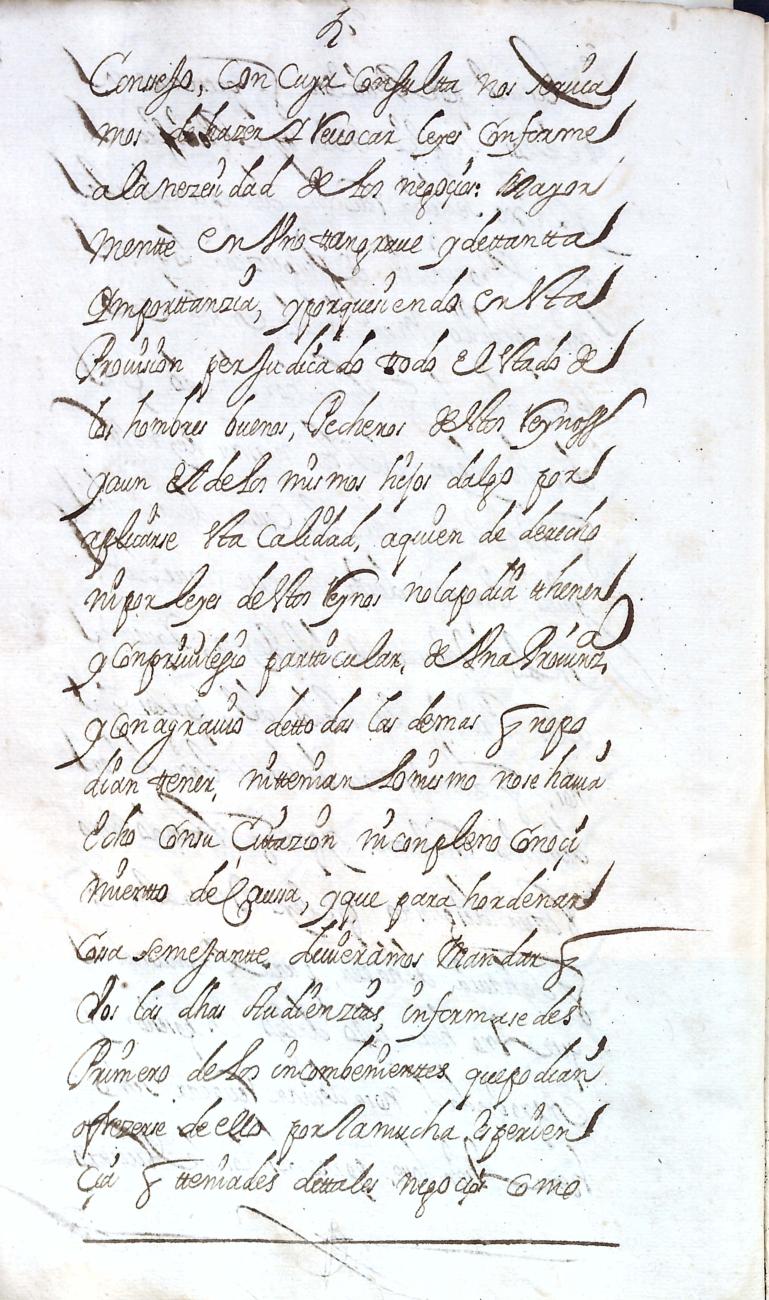 Consejo, Con Cuya Consulta nos servia
mos de hazer Y Revocar leyes Conforme
a la nezesidad de los negoçios: Mayor
mentte en Vno ttan grave y dettantta
Ymporttanzia, y porque siendo en Esta
Provision perjudicado ttodo el Estado de
los hombres buenos, Pecheros destos Reynoss
y aun El de los mismos hijos dalgo por
aplicarse Esta Calidad, a quien de derecho
ni por leyes destos Reynos no la podia tthener
y Con privilegio partticular, de Vna Provinz,
y Con agravio detto das las demas q no po
dian ttener, ni ttenian lo mismo no se havia
Echo Consu Cittazion ni con pleno Conoçi
mientto de Causa, y que para hordenar
Cosa semejantte. devieramos Mandar q
Vos las dhas Audienzias, informasedes
Primero de los incombenienttes que podian
ofrezerse de ello por la mucha Esperien
çia q tteniades dettales negoçios Como